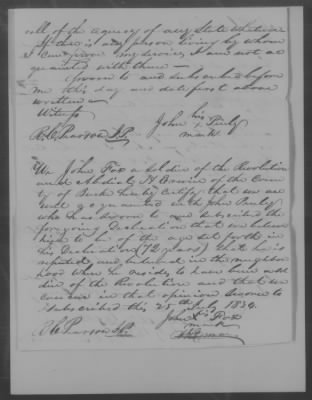 roll of the agency of any State Whatever
If there is any person living by whom
I can prove my services I am not ac
quainted with them —
Sworn to and subscribed before
me this day and date first above
written —
Witness
R. C. Pearson J.P. John his x mark
We John Fox a soldier of the Revolution
and of the County
of Burke hereby Certify that we are
well acquainted with John
who has sworn to and subscribed the
foregoing Declaration that we believe
him to be of the age set forth in
his Declaration (72 years) that he is
reputed and believed in the neighbor
hood where he resides to have been a sol
dier of the Revolution and that we
concur in that opinion Sworn to
& subscribed this 25th July 1834
John his x Fox
R. C. Pearson J.P. mark